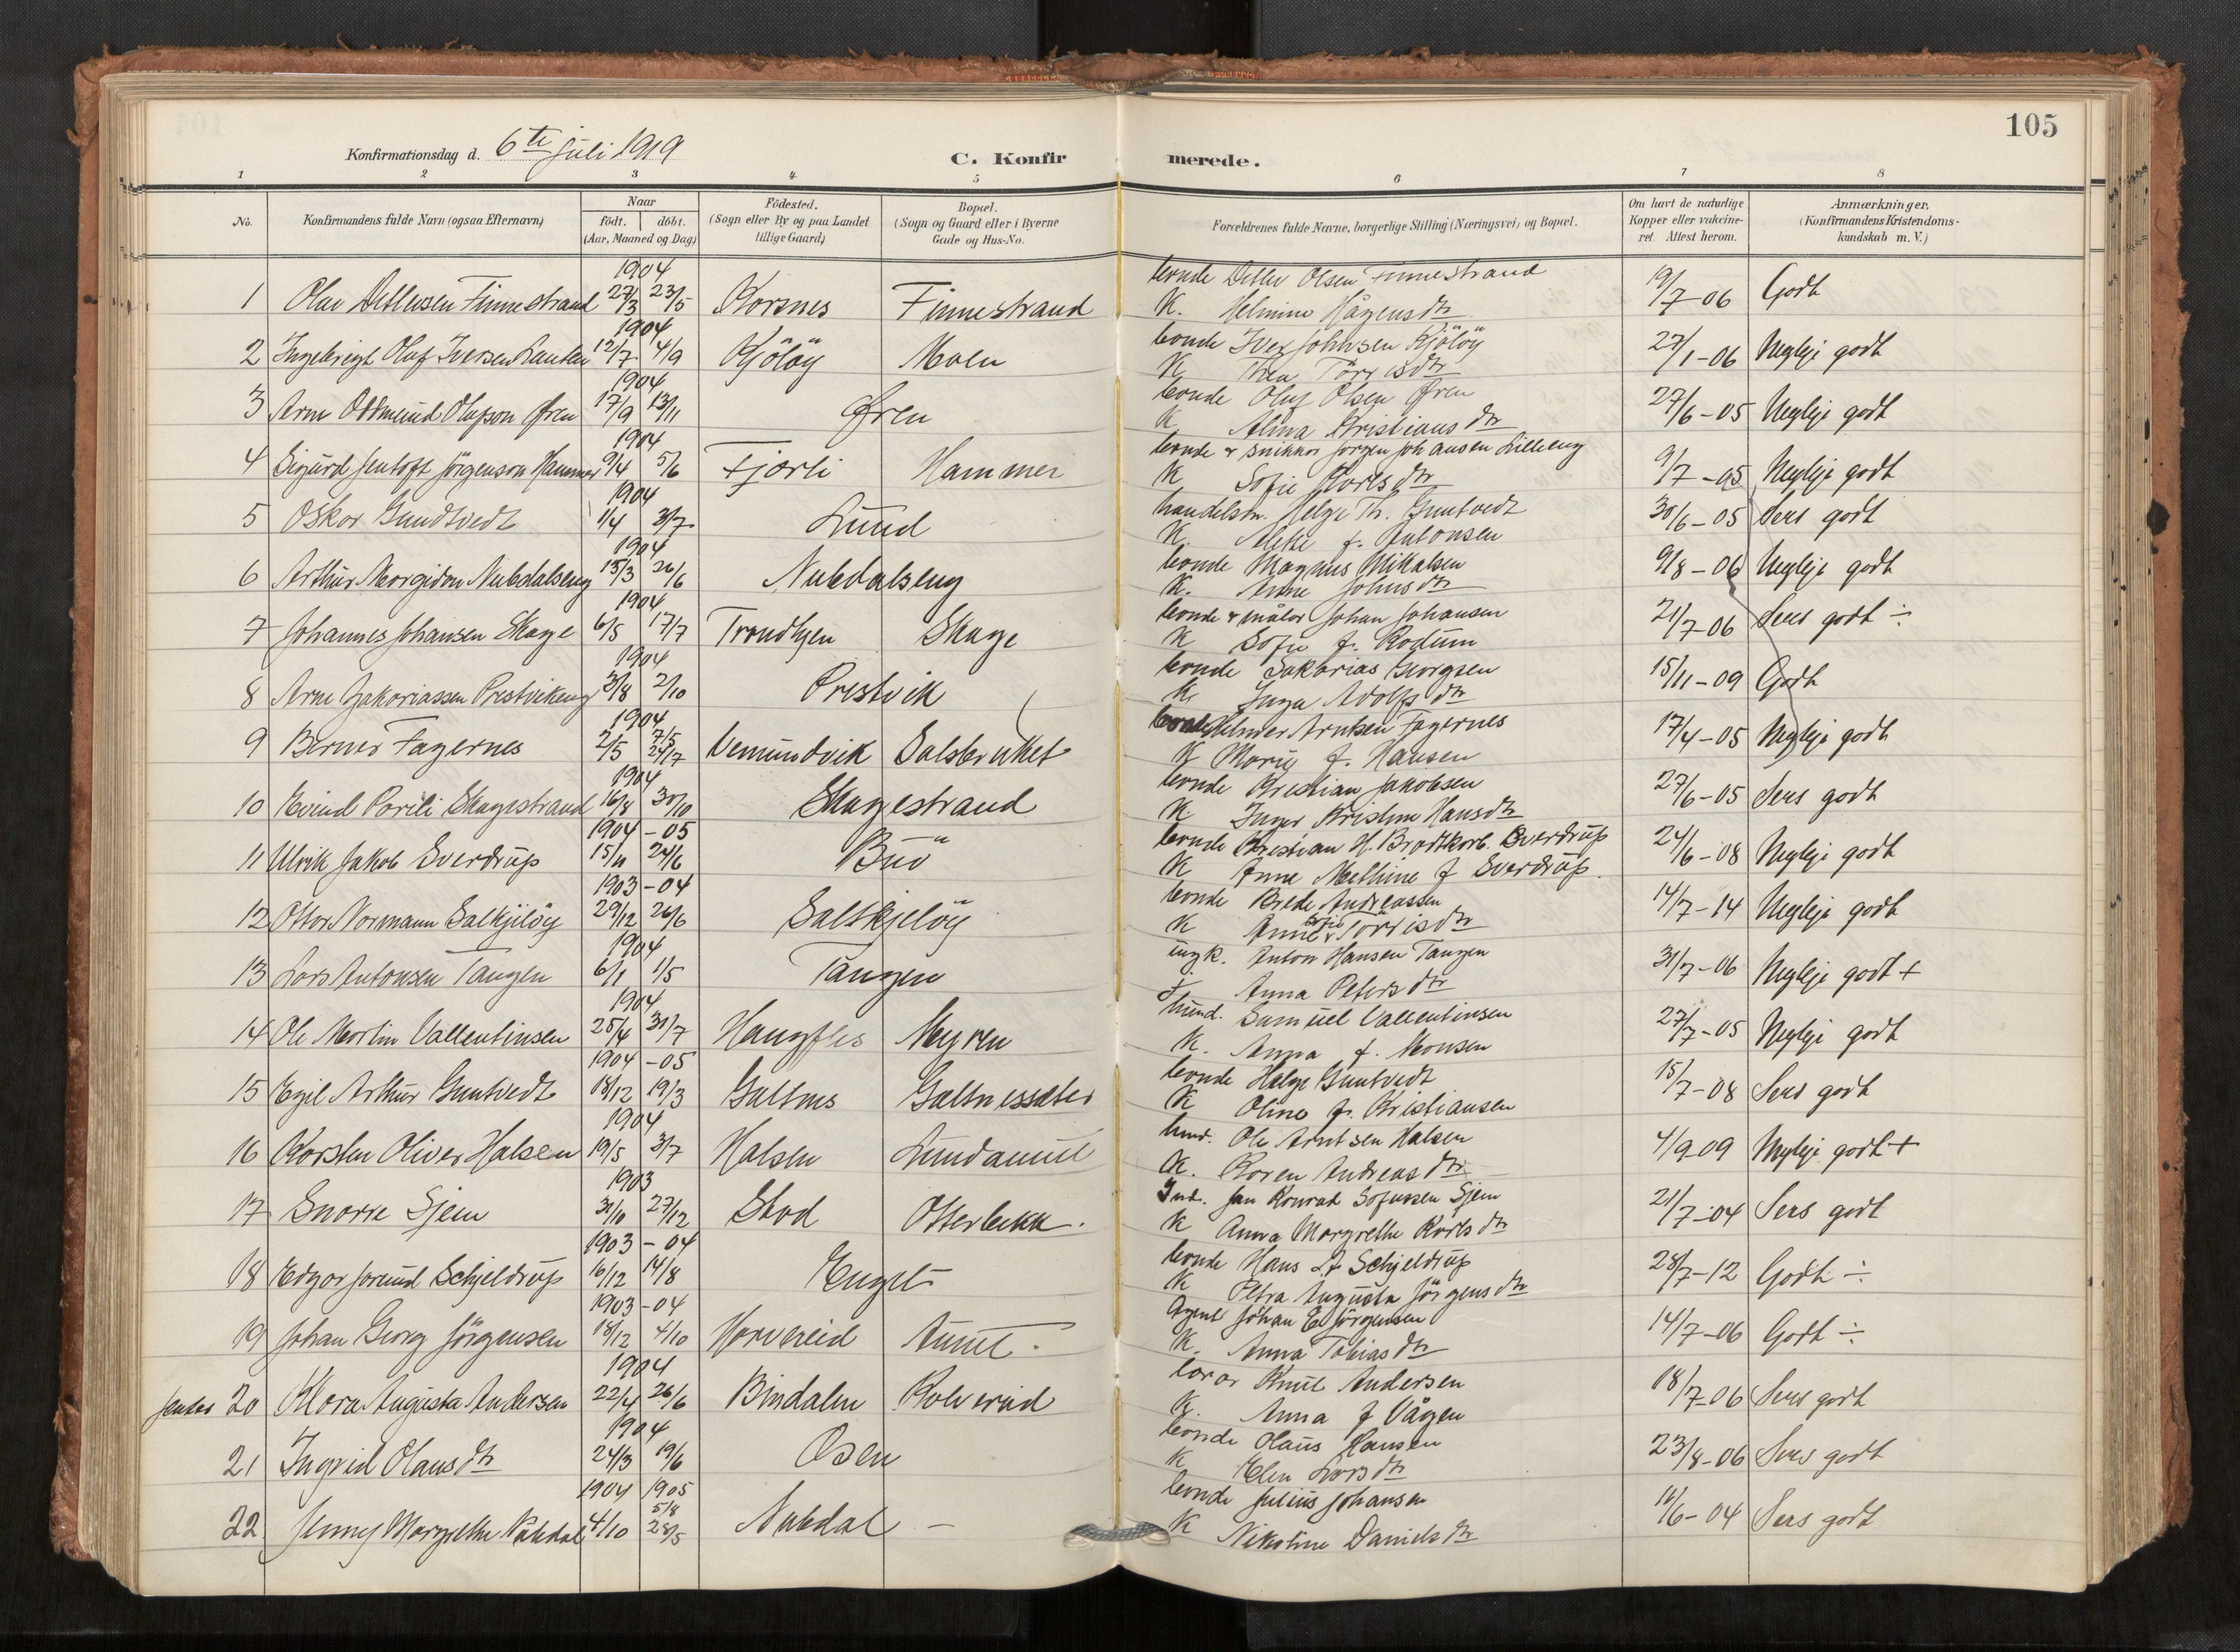 105
Konfirmationsdag d. 6te juli 1919
C. Konfirmerede.
1 2 3 4 5 6 7 8
No.
Konfirmandens fulde Navn (ogsaa Efternavn)
Naar
födt. döbt.
(Aar, Maaned og Dag)
Födested.
(Sogn eller By og paa Landet
tillige Gaard)
Bopæl.
(Sogn og Gaard eller i Byerne
Gade og Hus-No.
Forældrenes fulde Navne, borgerlige Stilling (Næringsvei) og Bopæl.
Om havt de naturlige
Kopper eller vakcine-
ret. Attest herom.
Anmærkninger.
(Konfirmandens Kristendoms-
kundskab m. V.)
1904
1 Olav Detlevsen Finnestrand 27/3 23/5 Korsnes Finnestrand bonde Detlev Olsen Finnestrand 19/7-06 Godt
K. Helmine Hågensdtr
1904
2 Ingebrigt Olaf Iversen 12/7 4/9 Kjölöy Moen bonde Iver Johnsen Kjölöy 27/1-06 Megleje godt
K Thea Törrisdtr
1904
3 Arne Oddmund Olufson Øren 17/9 13/11 Øren bonde Oluf Olsen Øren 27/6-05 Megleje godt
K Alma Kristiansdtr
1904
4 Sigurd Jentoft Jörgenson Hammer 9/4 5/6 Fjærli Hammer bonde & snikkar Jorgen Johansen Lilleeng 9/7-05 Megleje godt
K Sofie Karlsdtr
1904
5 Oskar Gundtvedt 1/4 3/7 Lund handelsm. Helge Th. Guntvedt 30/6-05 Sers godt
K. f. Antonsen
1904
6 Arthur Margidon Nubdalseng 15/3 26/6 Nubdalseng bonde Magnus Mikalsen 9/8-06 Megleje godt
K. Anne Johnsdtr
1904
7 Johannes Johansen Skage 6/5 17/7 Trondhjen Skage bonde & målar Johan Johansen 21/7-06 Sers godt ÷
K Sofie f. Rodum
1904
8 Arne Zakariassen Prestvikeng 3/8 2/10 Prestvik bonde Sakarias Georgsen 15/11-09 Godt
K. Inga Adolfsdtr
1904
9 Berner Fagernes 2/5 7/5 24/7 Vemundvik Salsbruket Helmer Arntsen Fagernes 17/4-05 Megleje godt
K Marie f. Hansen
1904
10 Eivind Parili Skagestrand 16/8 30/10 Skagestrand bonde Kristian Jakobsen 27/6-05 Sers godt
K Inger Kristine Hansdtr
1904 - 05
11 Ulrik Jakob Sverdrup 15/11 24/6 Buö bonde Kristian H. Brodtkorb. Sverdrup 24/6-08 Megleje godt
K Anna Methine f Sverdrup.
1903 - 04
12 Ottar Normann Saltkjelöy 29/12 26/6 Saltkjelöy bonde Brede Andreassen 14/7-14 Megleje godt
K Anne Sofie Törrisdtr
1904
13 Lars Antonsen Tangen 6/1 1/5 Tangen ungk. Anton Hansen Tangen 31/7-06 Megleje godt +
f. Anna Petersdtr
1904
14 Ole Martin Vallentinsen 25/4 31/7 Myren Samuel Vallentinsen 27/7-05 Megleje godt
K. Anna f. Monsen
1904 - 05
15 Egil Arthur Guntvedt 18/12 19/3 Galtnes Galtnessæter bonde Helge Guntvedt 15/7-08 Sers godt
K Oline f. Kristiansen
1904
16 Karsten Oliver Halsen 19/5 3/7 Halsen Lundamut Ole Arntsen Halsen 4/9 09 Megleje godt +
K. Karen Andreasdtr
1903
17 Snorre Sjem 31/10 27/12 Stod Otterbekk. Ind. Jan Konrad Sofussen Sjem 21/7-04 Sers godt
K Anna Margrethe Karlsdtr
1903 - 04
18 Edgar Jorund Schjeldrup 16/12 14/8 Enget bonde Hans Schjeldrup 28/7-12 Godt ÷
K Petra Augusta Jörgensdtr
1903 - 04
19 Johan Georg Jörgensen 18/12 4/10 Horvereid Aunet. Agent Johan E. Jörgensen 14/7-06 Godt ÷
K. Anna Tobiasdtr
1904
jenter 20 Klara Augusta Andersen 22/4 26/6 Bindalen Kolvereid lærar Knut Andersen 18/7-06 Sers godt
K. Anna f Vågen
1904
21 Ingrid Olausdtr 24/3 19/6 Osen bonde Olaus Hansen 23/8-06 Sers godt
K Elen Larsdtr
1904 1905
22 Jenny Margrethe Nubdal 4/10 5/8 28/5 Nubdal - bonde Julius Johansen 16/6-04 Sers godt
K Nikoline Danielsdtr